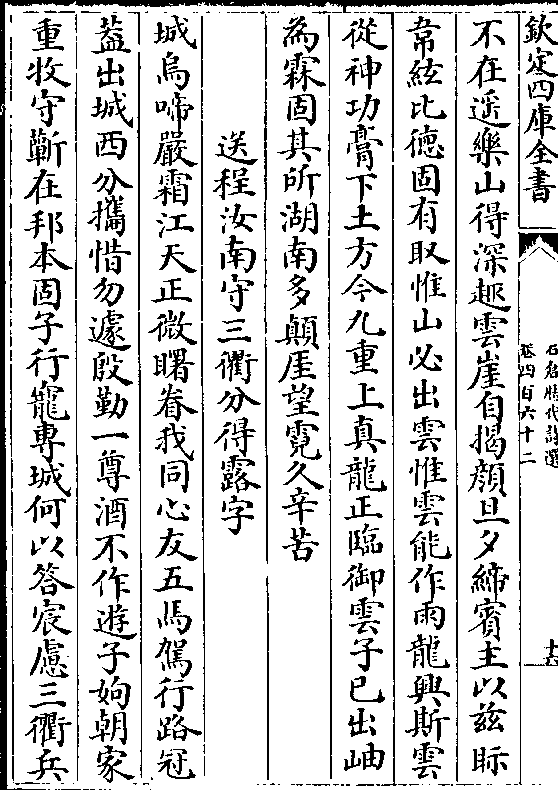 欽定四庫全書
石倉歷代詩選
卷四百六十二
十六
不在遥樂山得深趣雲崖自揭顔旦夕締賓主以兹眎
韋絃比德固有取惟山必出雲惟雲能作雨龍興斯雲
從神功膏下土方今九重上真龍正臨御雲子已出岫
為霖固其所湖南多顛厓望霓久辛苦
送程汝南守三衢分得露字
城烏啼嚴霜江天正微曙眷我同心友五馬駕行路冠
葢出城西分攜惜勿遽殷勤一尊酒不作遊子姁朝家
重牧守蘄在邦本固子行寵專城何以答宸慮三衢兵